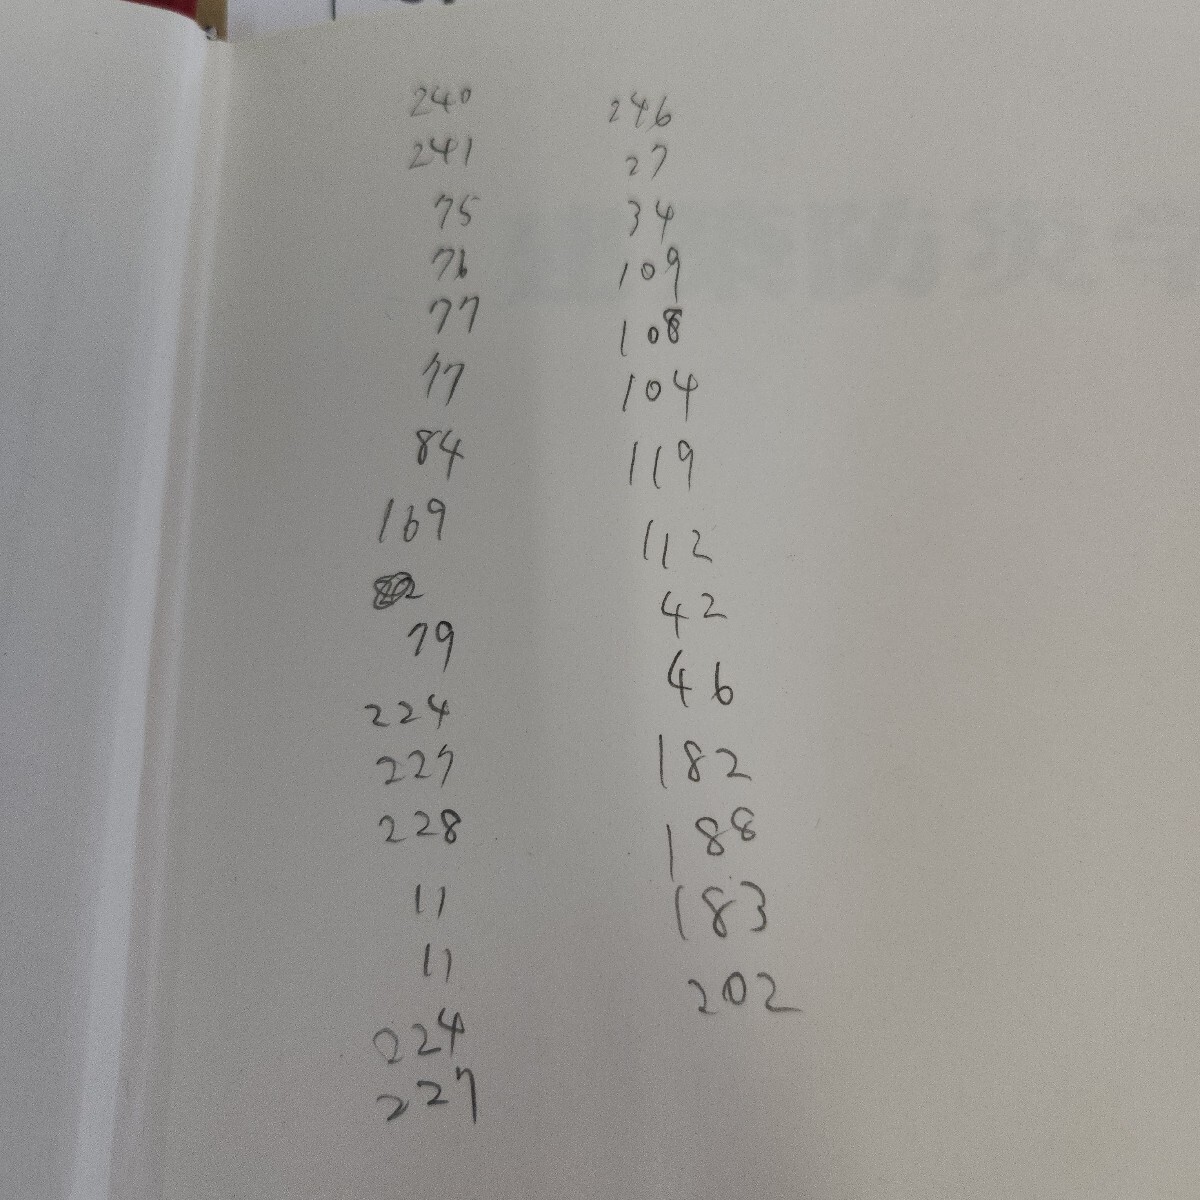 240
241
75
76
77
77
84
169
79
224
227
228
11
11
224
227
246
27
34
109
108
104
119
112
42
46
182
188
183
202